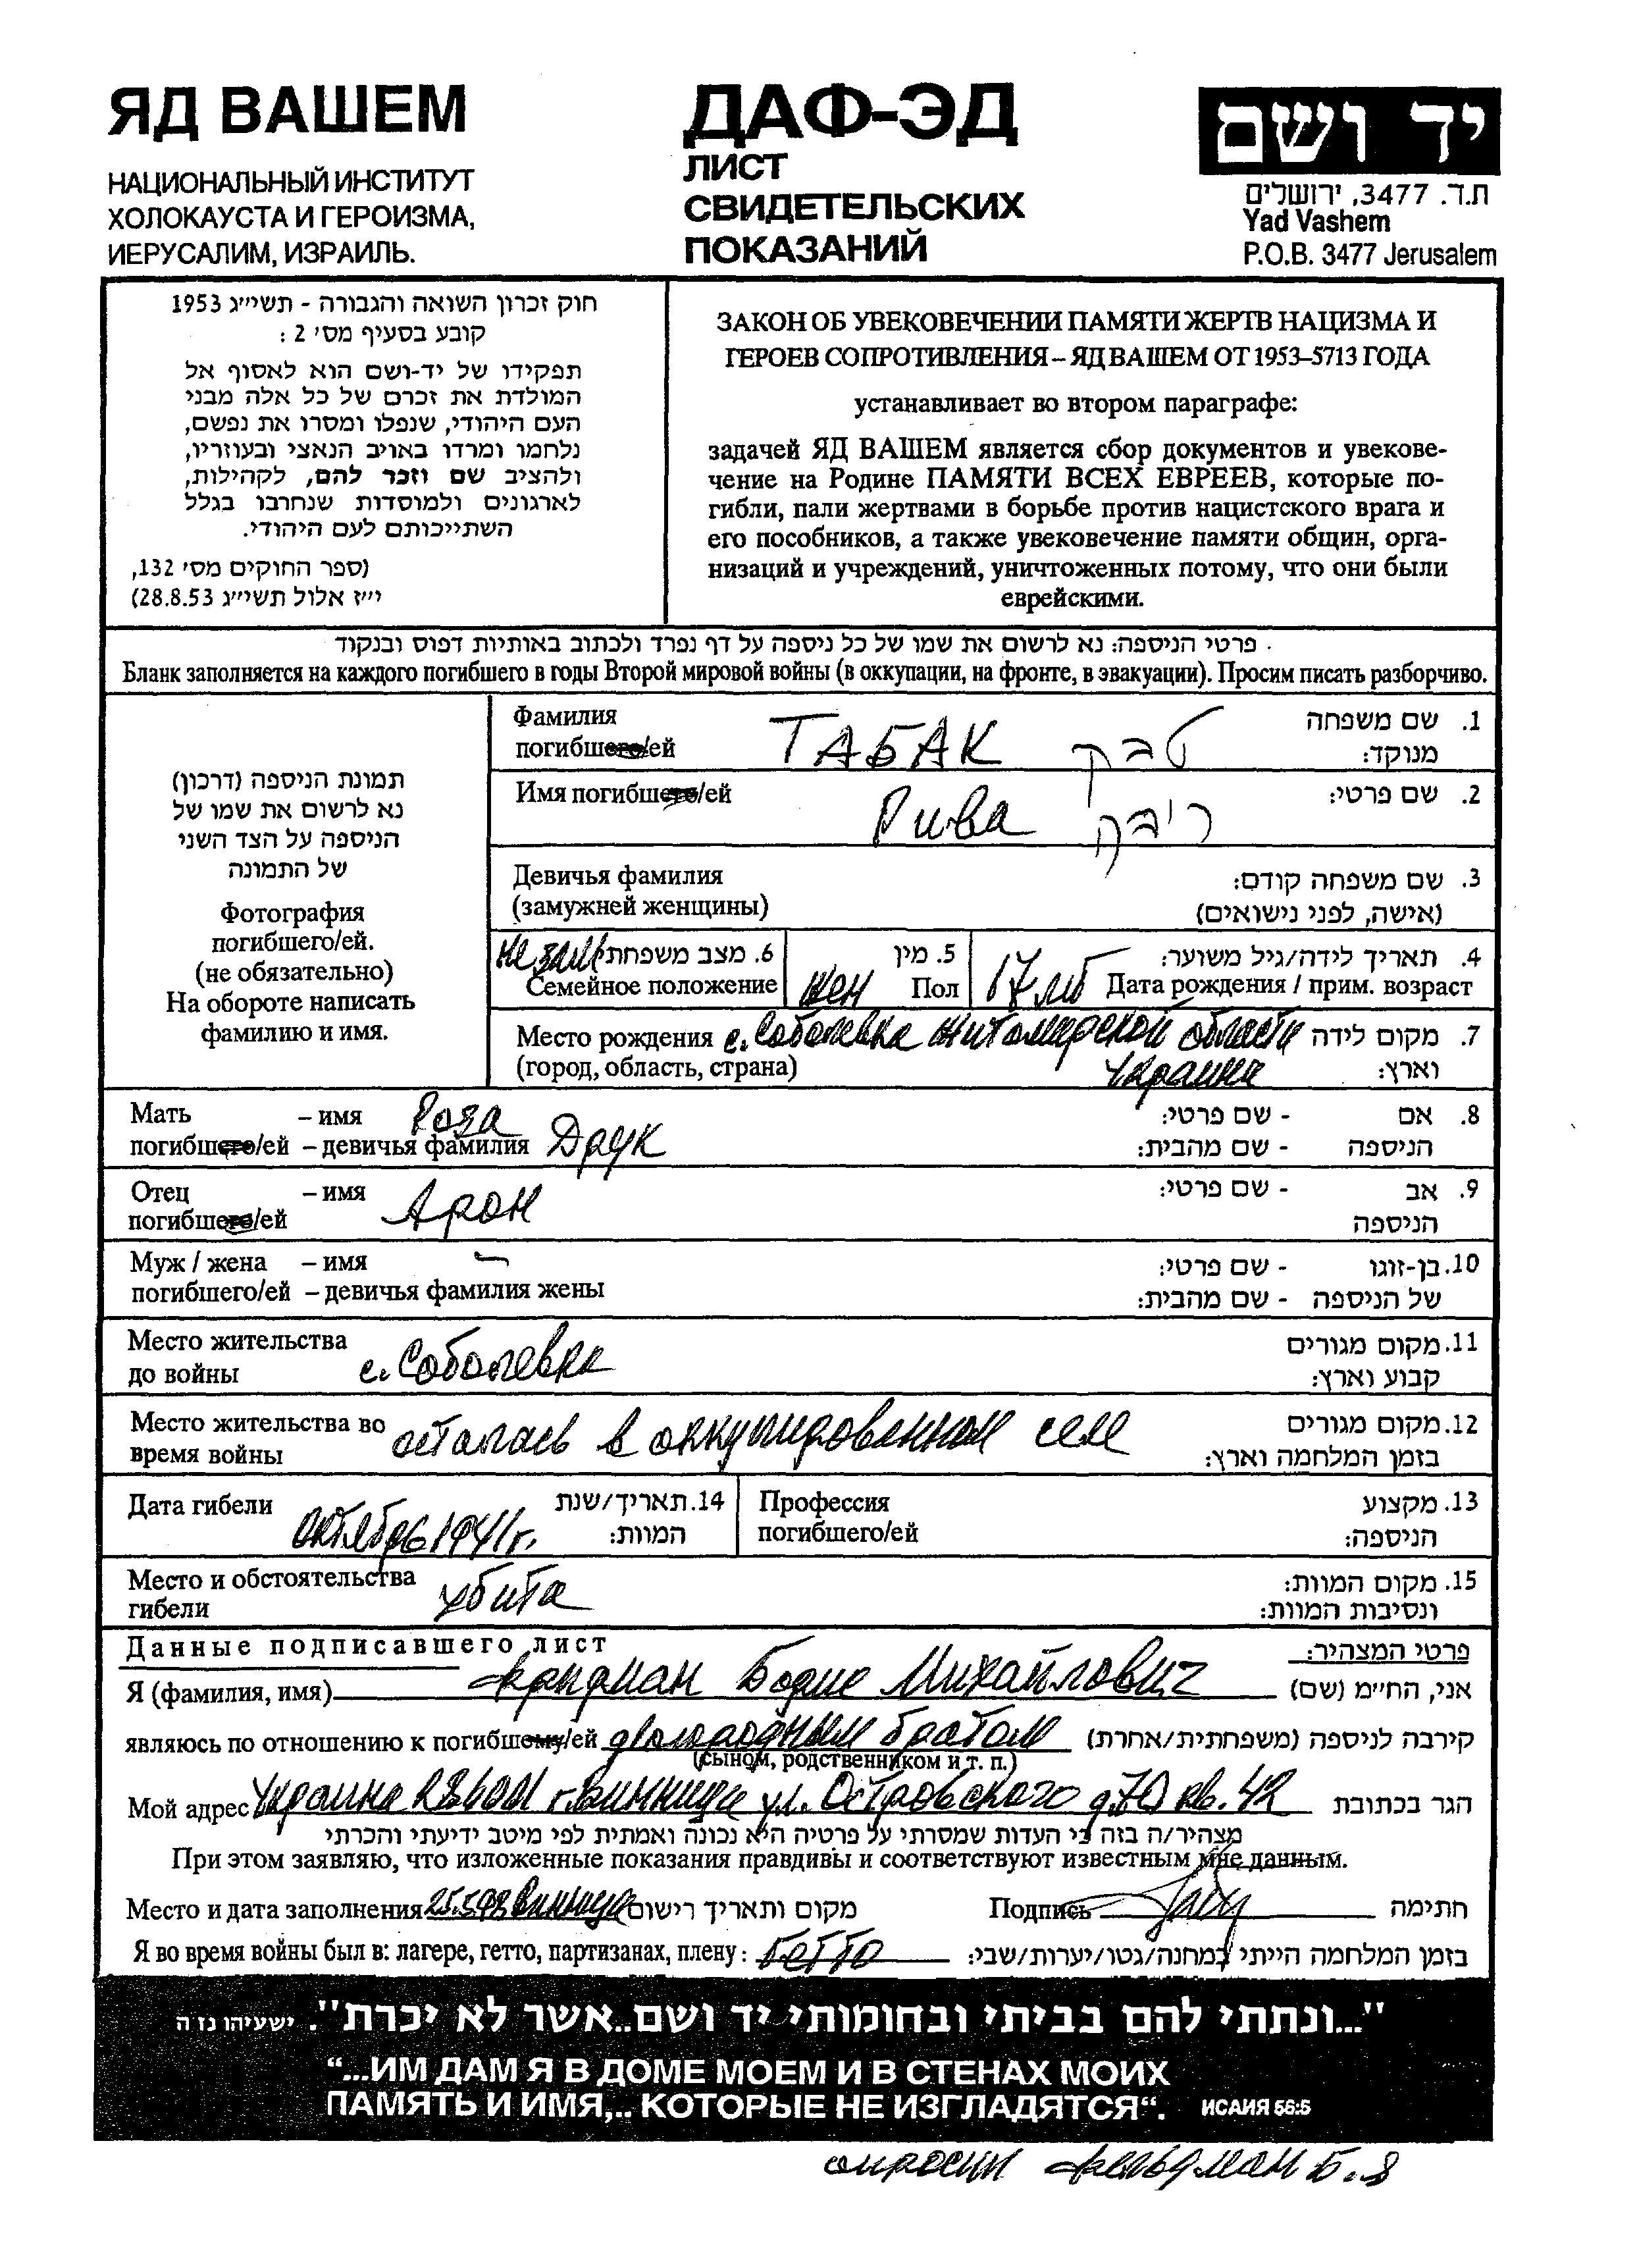 ЯД ВАШЕМ
НАЦИОНАЛЬНЫЙ ИНСТИТУТ
ХОЛОКАУСТА И ГЕРОИЗМА,
ИЕРУСАЛИМ, ИЗРАИЛЬ.
ДАФ-ЭД
ЛИСТ
СВИДЕТЕЛЬСКИХ
ПОКАЗАНИЙ
יד ושם
ת.ד. 3477, ירושלים
Yad Vashem
P.O.B. 3477 Jerusalem
חוק זכרון השואה והגבורה - תשי״ג 1953
קובע בסעיף מס׳ 2 :
תפקידו של יד-ושם הוא לאסוף אל
המולדת את זכרם של כל אלה מבני
העם היהודי, שנפלו ומסרו את נפשם,
נלחמו ומרדו באויב הנאצי ובעוזריו,
ולהציב שם וזכר להם, לקהילות,
לארגונים ולמוסדות שנחרבו בגלל
השתייכותם לעם היהודי.
(ספר החוקים מס׳ 132,
י״ז אלול תשי״ג 28.8.53)
ЗАКОН ОБ УВЕКОВЕЧЕНИИ ПАМЯТИ ЖЕРТВ НАЦИЗМА И
ГЕРОЕВ СОПРОТИВЛЕНИЯ – ЯД ВАШЕМ ОТ 1953–5713 ГОДА
устанавливает во втором параграфе:
задачей ЯД ВАШЕМ является сбор документов и увекове-
чение на Родине ПАМЯТИ ВСЕХ ЕВРЕЕВ, которые по-
гибли, пали жертвами в борьбе против нацистского врага и
его пособников, а также увековечение памяти общин, орга-
низаций и учреждений, уничтоженных потому, что они были
еврейскими.
פרטי הניספה: נא לרשום את שמו של כל ניספה על דף נפרד ולכתוב באותיות דפוס ובנקוד
Бланк заполняется на каждого погибшего в годы Второй мировой войны (в оккупации, на фронте, в эвакуации). Просим писать разборчиво.
תמונת הניספה (דרכון)
נא לרשום את שמו של
הניספה על הצד השני
של התמונה
Фотография
погибшего/ей.
(не обязательно)
На обороте написать
фамилию и имя.
Фамилия ТАБАК טבק 1. שם משפחה
погибшего/ей מנוקד:
Имя погибшего/ей Рива ריבה 2. שם פרטי:
Девичья фамилия 3. שם משפחה קודם:
(замужней женщины) (אישה, לפני נישואים)
не зам 6. מצב משפחתי 5. מין 4. תאריך לידה/גיל משוער:
Семейное положение жен Пол 17 лет Дата рождения / прим. возраст
Место рождения с. Соболевка Житомирской области 7. מקום לידה
(город, область, страна) Украина וארץ:
Мать – имя Роза 8. אם - שם פרטי:
погибшего/ей – девичья фамилия Друк הניספה - שם מהבית:
Отец – имя Арон 9. אב - שם פרטי:
погибшего/ей הניספה
Муж / жена – имя – 10. בן-זוגו - שם פרטי:
погибшего/ей – девичья фамилия жены של הניספה - שם מהבית:
Место жительства с. Соболевка 11. מקום מגורים
до войны קבוע וארץ:
Место жительства во осталась в оккупированном селе 12. מקום מגורים
время войны בזמן המלחמה וארץ:
Дата гибели октябрь 1941г. 14. תאריך/שנת המוות:
Профессия 13. מקצוע
погибшего/ей הניספה:
Место и обстоятельства убита 15. מקום המוות:
гибели ונסיבות המוות:
Данные подписавшего лист פרטי המצהיר:
Я (фамилия, имя) Борис Михайлович אני, הח״מ (שם)
являюсь по отношению к погибшему/ей двоюродным братом קירבה לניספה (משפחתית/אחרת)
(сыном, родственником и т. п.)
Мой адрес Украина г. Винница ул. Островского д.70 кв. 42 הגר בכתובת
מצהיר/ה בזה כי העדות שמסרתי על פרטיה היא נכונה ואמתית לפי מיטב ידיעתי והכרתי
При этом заявляю, что изложенные показания правдивы и соответствуют известным мне данным.
Место и дата заполнения 25.5.98 Винница מקום ותאריך רישום Подпись חתימה
Я во время войны был в: лагере, гетто, партизанах, плену: гетто בזמן המלחמה הייתי במחנה/גטו/יערות/שבי:
"...ונתתי להם בביתי ובחומותי יד ושם..אשר לא יכרת". ישעיהו נז ה
“...ИМ ДАМ Я В ДОМЕ МОЕМ И В СТЕНАХ МОИХ
ПАМЯТЬ И ИМЯ,.. КОТОРЫЕ НЕ ИЗГЛАДЯТСЯ“. ИСАИЯ 56:5
опросил Фельдман Б.